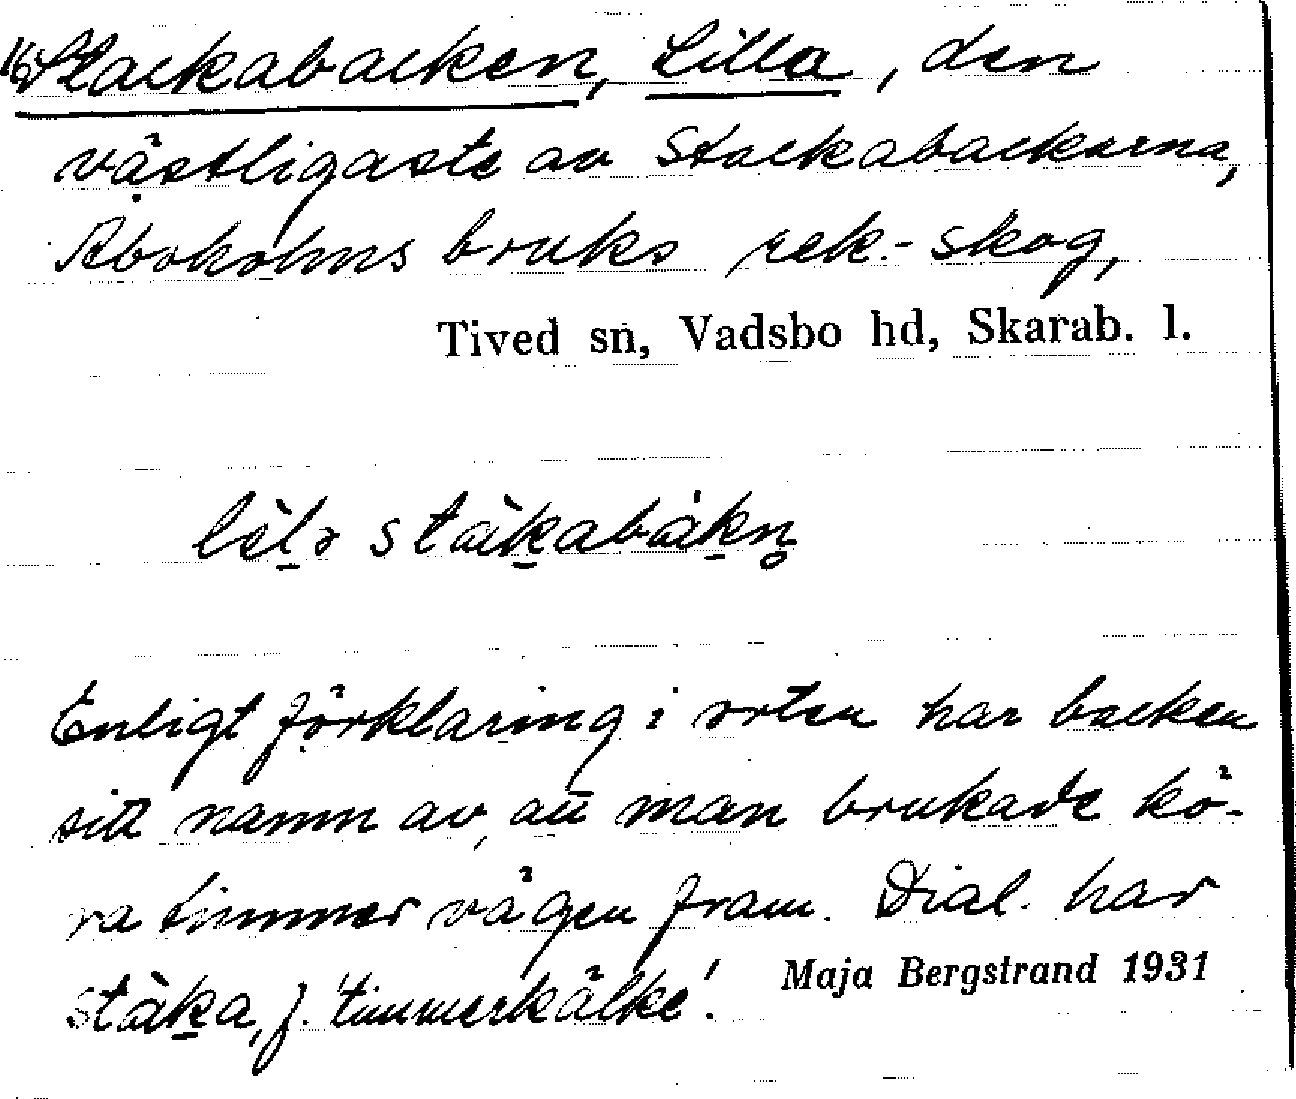 Stackabacken, Lilla, den
västligaste av Stackabackarna,
Aboholms bruks rek.-skog,
Tived sn, Vadsbo hd, Skarab. l.
stàkabàkn̥
Enligt förklaring i orten har backen
sitt namn av, att man brukade kö-
ra timmer vägen fram. Dial. har
stàka, f. 'timmerkälke'.
Maja Bergstrand 1931